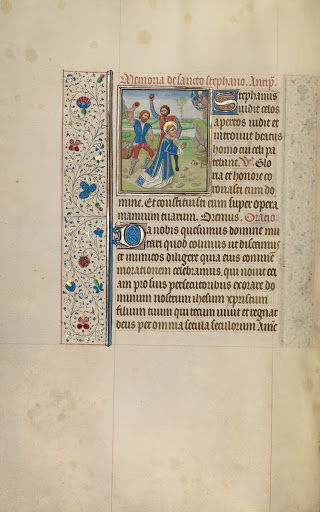 Memoria de sancto stephano. Antip̄.
Stephanus
vidit celos
apertos vidit et
introivit beatus
homo cui celi pa
tebant. V. Glo
ria et honore co
ronasti eum do
mine. Et constituisti eum super opera
manuum tuarum. Oremus. Oracio
Da nobis quesumus domine mi
tari quod colimus ut discamus
et inimicos diligere quia eius comme
morationem celebramus, qui novit eci
am pro suis persecutoribus exorare do
minum nostrum ihesum xpristum
filium tuum qui tecum vivit et regnat
deus per omnia secula seculorum Ame